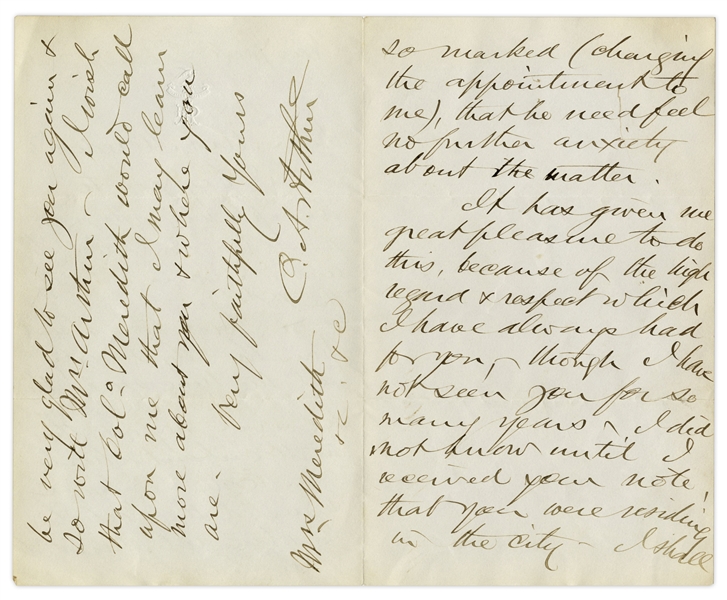 so marked (charging
the appointment to
me), that he need feel
no further anxiety
about the matter.
It has given me
great pleasure to do
this, because of the high
regard & respect which
I have always had
for you, – though I have
not seen you for so
many years – I did
not know until I
received your note
that you were residing
in the city – I shall
be very glad to see you again &
so will Mrs Arthur – I wish
that Col. Meredith would call
upon me that I may learn
more about you & where you
are –
Very faithfully Yours
C. A. Arthur
Mrs Meredith
&c. &c